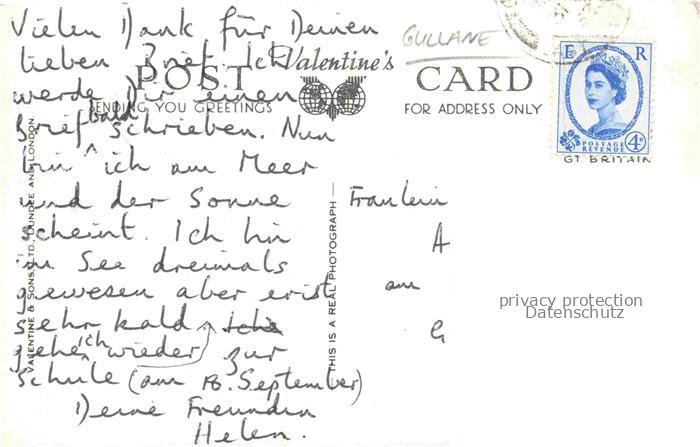 Vielen Dank für Deinen
lieben Brief. Ich
werde Dir einen
Brief bald schrieben. Nun
bin ich am Meer
und der Sonne
scheint. Ich bin
im See dreimals
gewesen aber er ist
sehr kald. Ich
gehe ich wieder zur
Schule (am 16. September)
Deine Freundin
Helen.
GULLANE
POST
Valentine's
CARD
SENDING YOU GREETINGS
FOR ADDRESS ONLY
E R
POSTAGE
REVENUE
4D
GT. BRITAIN
Fraulein
A
am
G
privacy protection
Datenschutz
VALENTINE & SONS, LTD., DUNDEE AND LONDON.
THIS IS A REAL PHOTOGRAPH